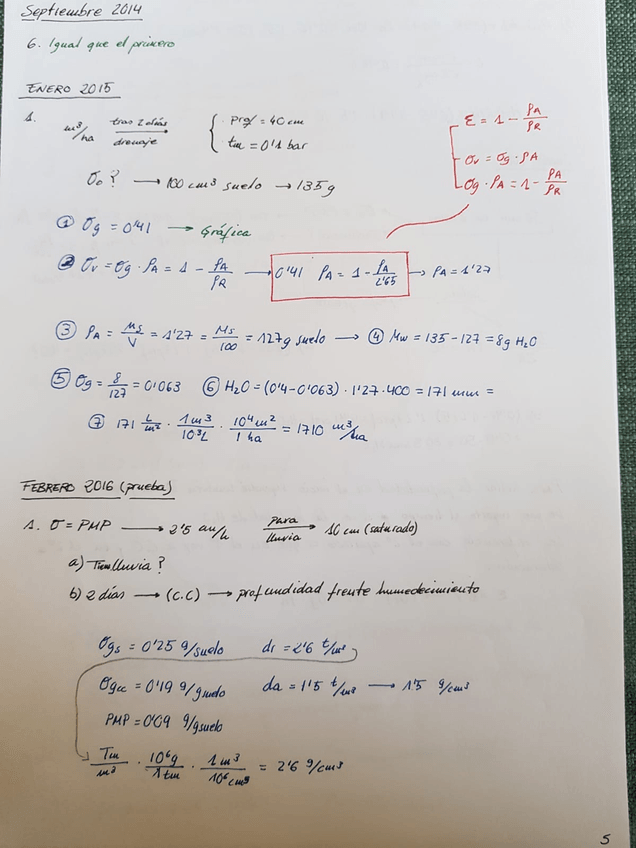 Septiembre 2014
6. Igual que el primero
ENERO 2015
1. m³/ha tras 2 días drenaje { Prof = 40 cm
tm = 0'1 bar
σo ? → 100 cm³ suelo → 135 g
ε = 1 - ρA/ρR
σv = σg · ρA
σg · ρA = 1 - ρA/ρR
① σg = 0'41 → Gráfica
② σv = σg · ρA = 1 - ρA/ρR → 0'41 ρA = 1 - ρA/2'65 → ρA = 1'27
③ ρA = Ms/V = 1'27 = Ms/100 = 127g suelo → ④ Mw = 135 - 127 = 8g H2O
⑤ σg = 8/127 = 0'063 ⑥ H2O = (0'4 - 0'063) · 1'27 · 400 = 171 mm =
⑦ 171 L/m² · 1 m³/10³ L · 10⁴ m²/1 ha = 1710 m³/ha
FEBRERO 2016 (prueba)
1. σ = PMP → 2'5 cm/h para lluvia → 10 cm (saturado)
a) lluvia ?
b) 2 días → (C.C) → profundidad frente humedecimiento
σgs = 0'25 g/suelo dr = 2'6 t/m³
σgcc = 0'19 g/gsuelo da = 1'5 t/m³ → 1'5 g/cm³
PMP = 0'09 g/gsuelo
Tm/m³ · 10⁶g/1tm · 1m³/10⁶cm³ = 2'6 g/cm³
5